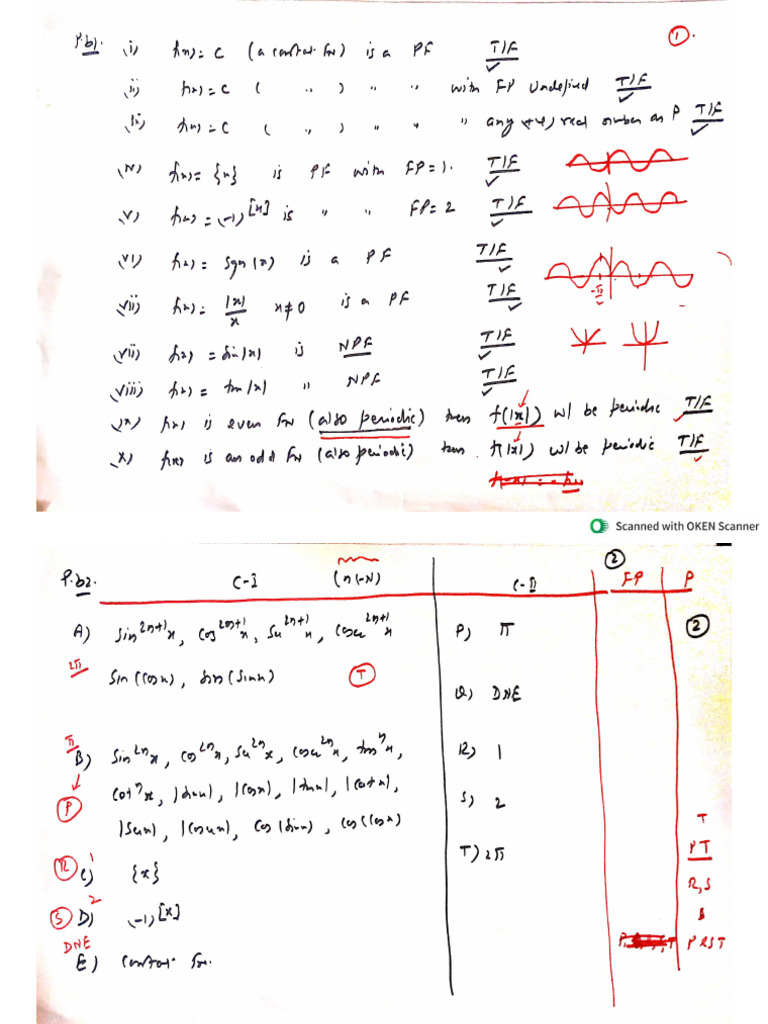 P.b1. i) f(x) = c (a constat fn) is a PF T/F 1.
ii) f(x) = c ( " ) " " with FP undefined T/F
iii) f(x) = c ( " ) " " " any +ve real number as P T/F
iv) f(x) = {x} is PF with FP = 1. T/F
v) f(x) = (-1)^[x] is " " FP = 2 T/F
vi) f(x) = sgn(x) is a PF T/F
vii) f(x) = |x|/x x≠0 is a PF T/F
-π
vii) f(x) = sin|x| is NPF T/F
viii) f(x) = tan|x| " NPF T/F
ix) f(x) is even fn (also periodic) then f(|x|) wl be periodic T/F
x) f(x) is an odd fn (also periodic) then f(|x|) wl be periodic T/F
Scanned with OKEN Scanner
P.b2. C-I (n∈N) C-II 2 FP P
A) sin^2n+1 x, cos^2n+1 x, sec^2n+1 x, cosec^2n+1 x P) π 2
2π sin(cosx), sin(sinx) T
Q) DNE
π B) sin^2n x, cos^2n x, sec^2n x, cosec^2n x, tan^n x, R) 1
P cot^n x, |sinx|, |cosx|, |tanx|, |cotx|, S) 2
|secx|, |cosecx|, cos(sinx), cos(cosx) T
T) 2π P T
R 1 C) {x} R, S
S 2 D) (-1)^[x] S
DNE E) constat fn. P R S T